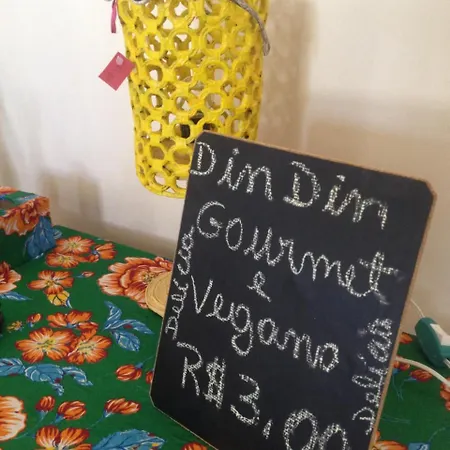 Din Din
Gourmet
e
Vegano
R$3,00
Delícia
Delícia